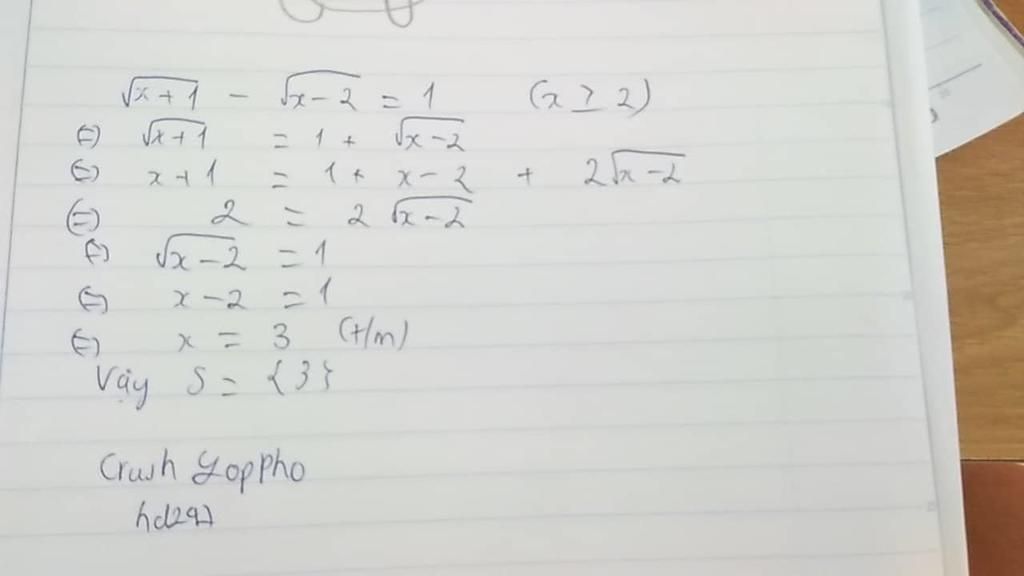 √x+1 - √x-2 = 1 (x ≥ 2)
(=) √x+1 = 1 + √x-2
(=) x+1 = 1 + x-2 + 2√x-2
(=) 2 = 2 √x-2
(=) √x-2 = 1
(=) x-2 = 1
(=) x = 3 (t/m)
Vậy S = {3}
Crush